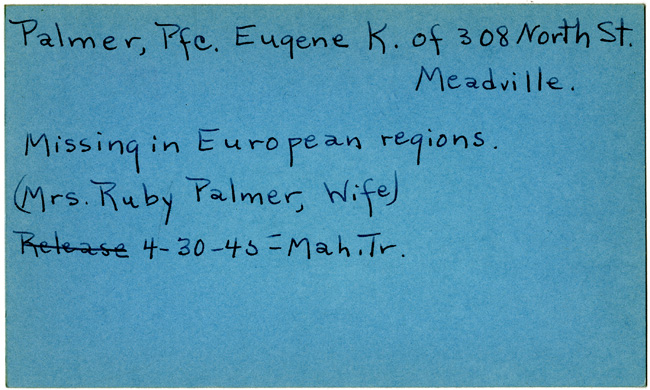 Palmer, Pfc. Eugene K. of 308 North St.
Meadville.
Missing in European regions.
(Mrs. Ruby Palmer, Wife)
Release 4-30-45 = Mah. Tr.